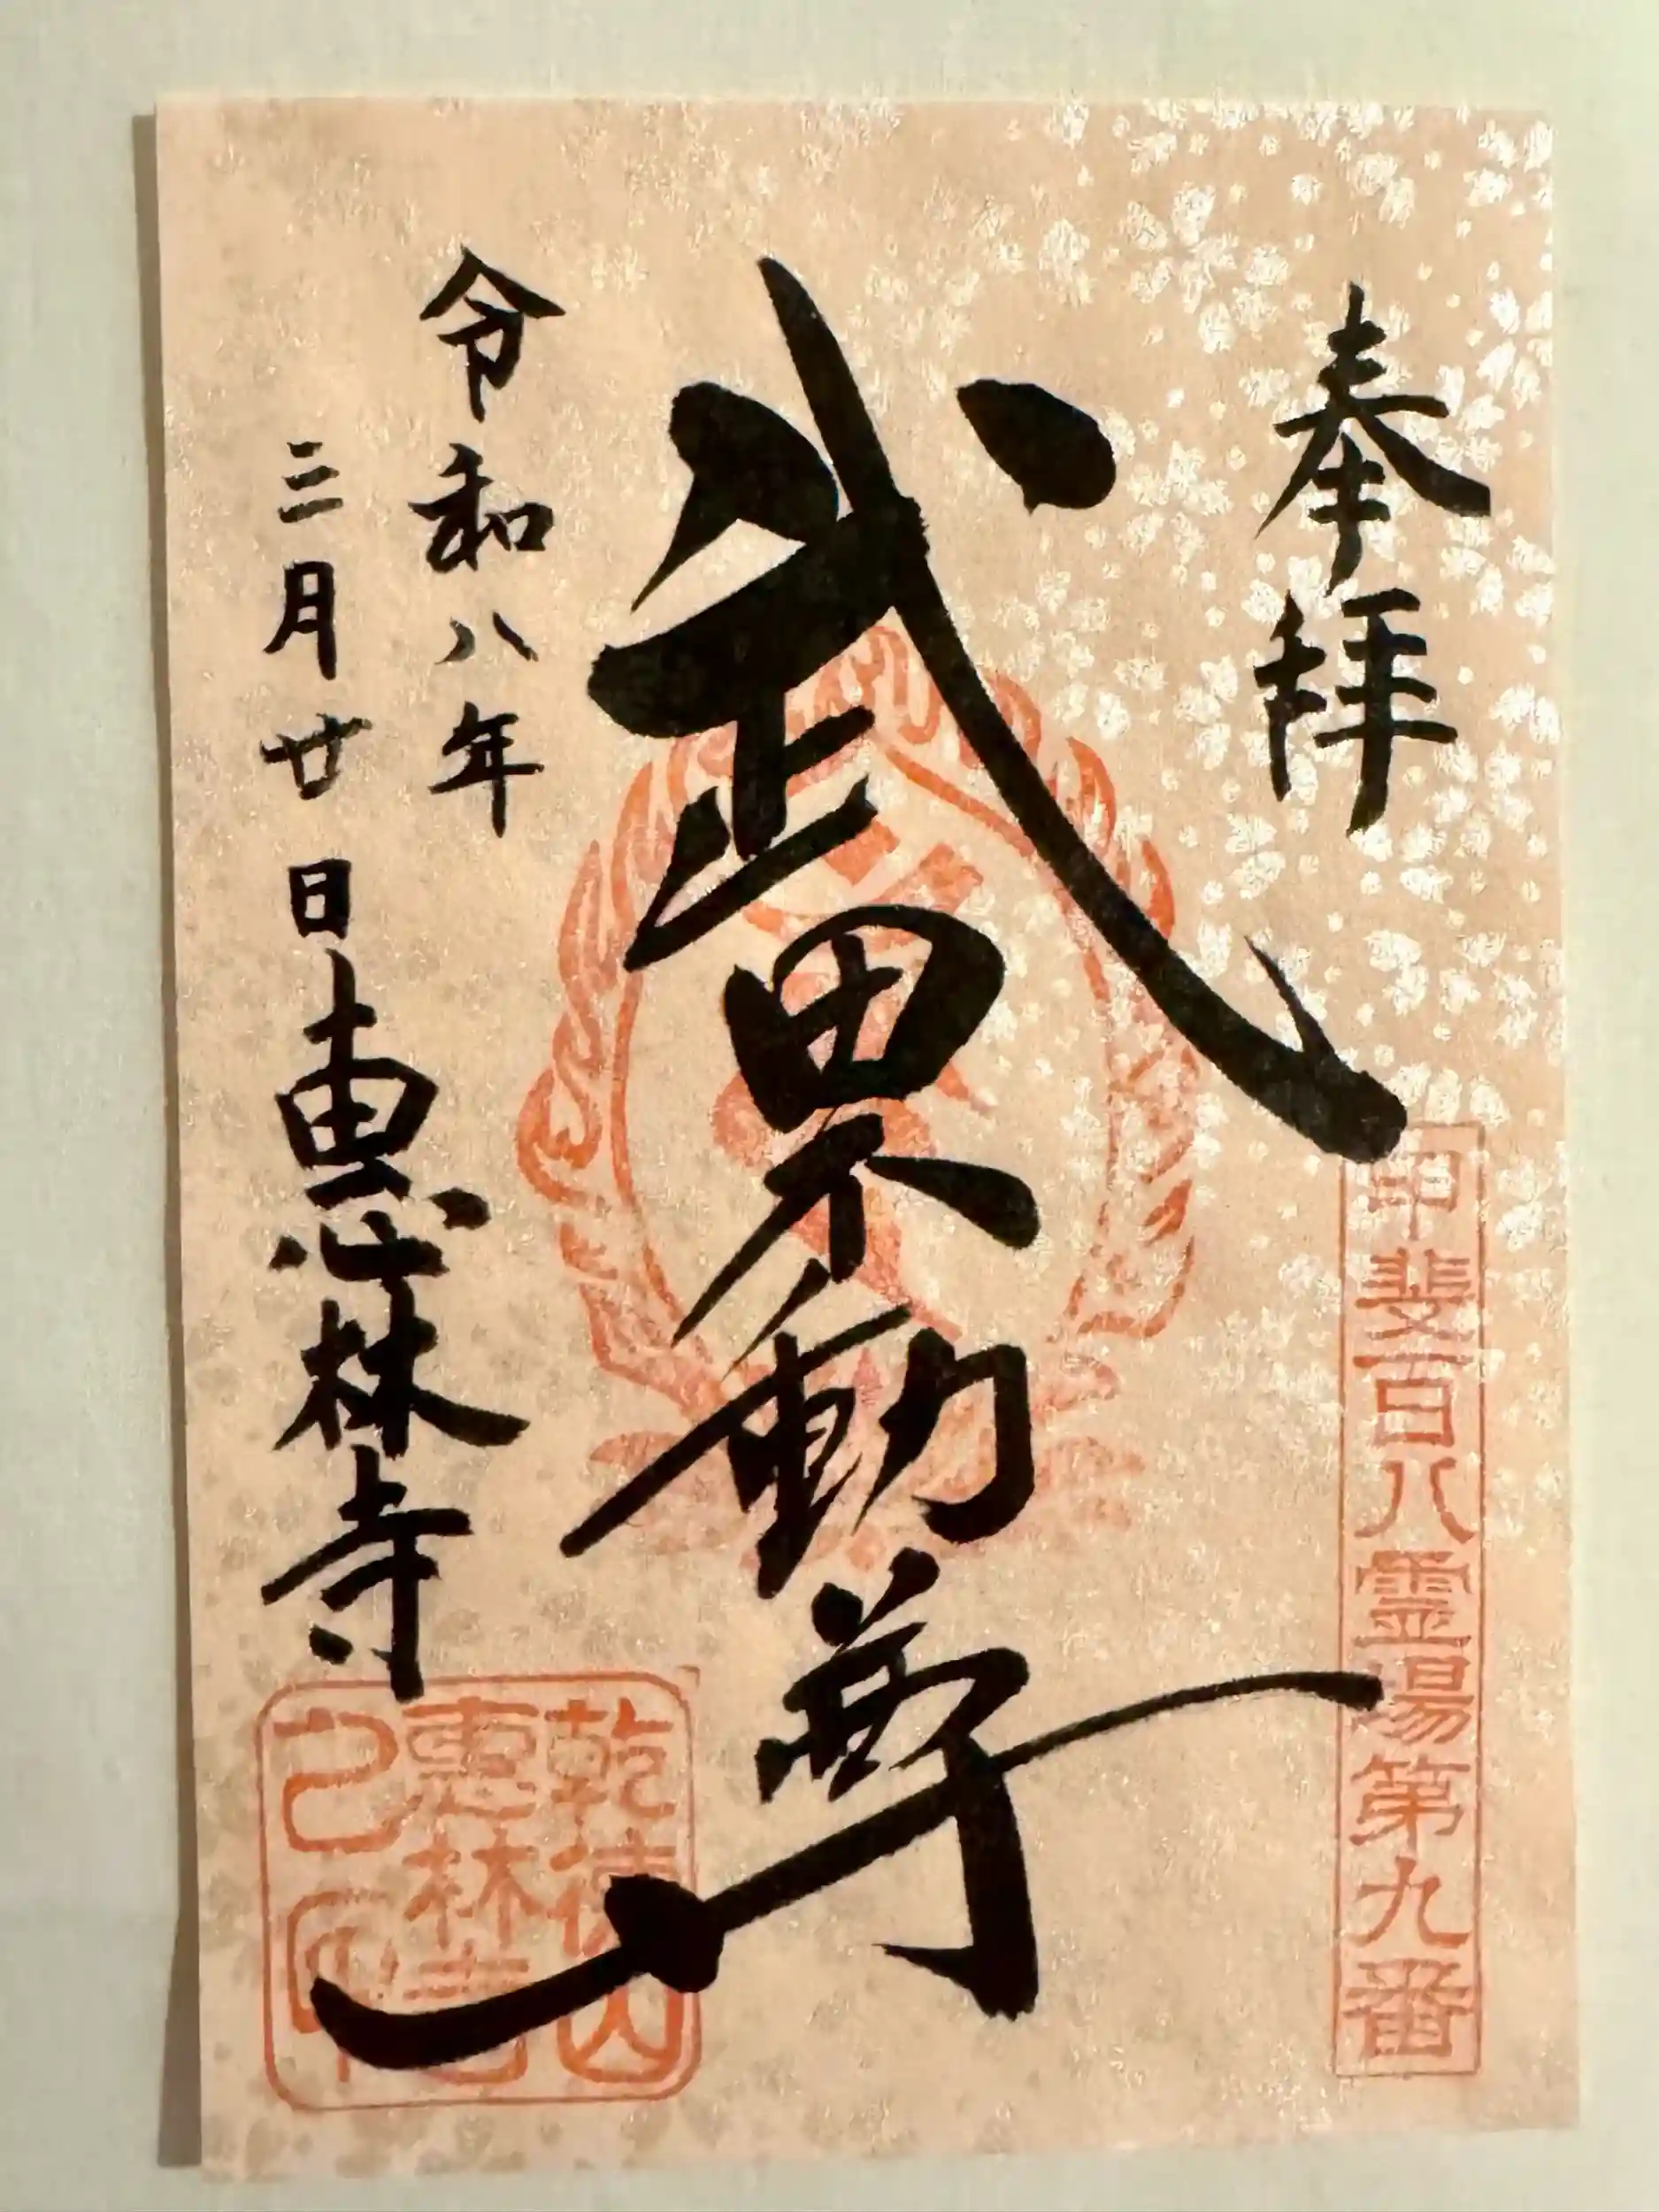 奉拝
甲斐百八霊場第九番
武田不動尊
令和八年
三月廿日
惠林寺
乾徳山
惠林寺